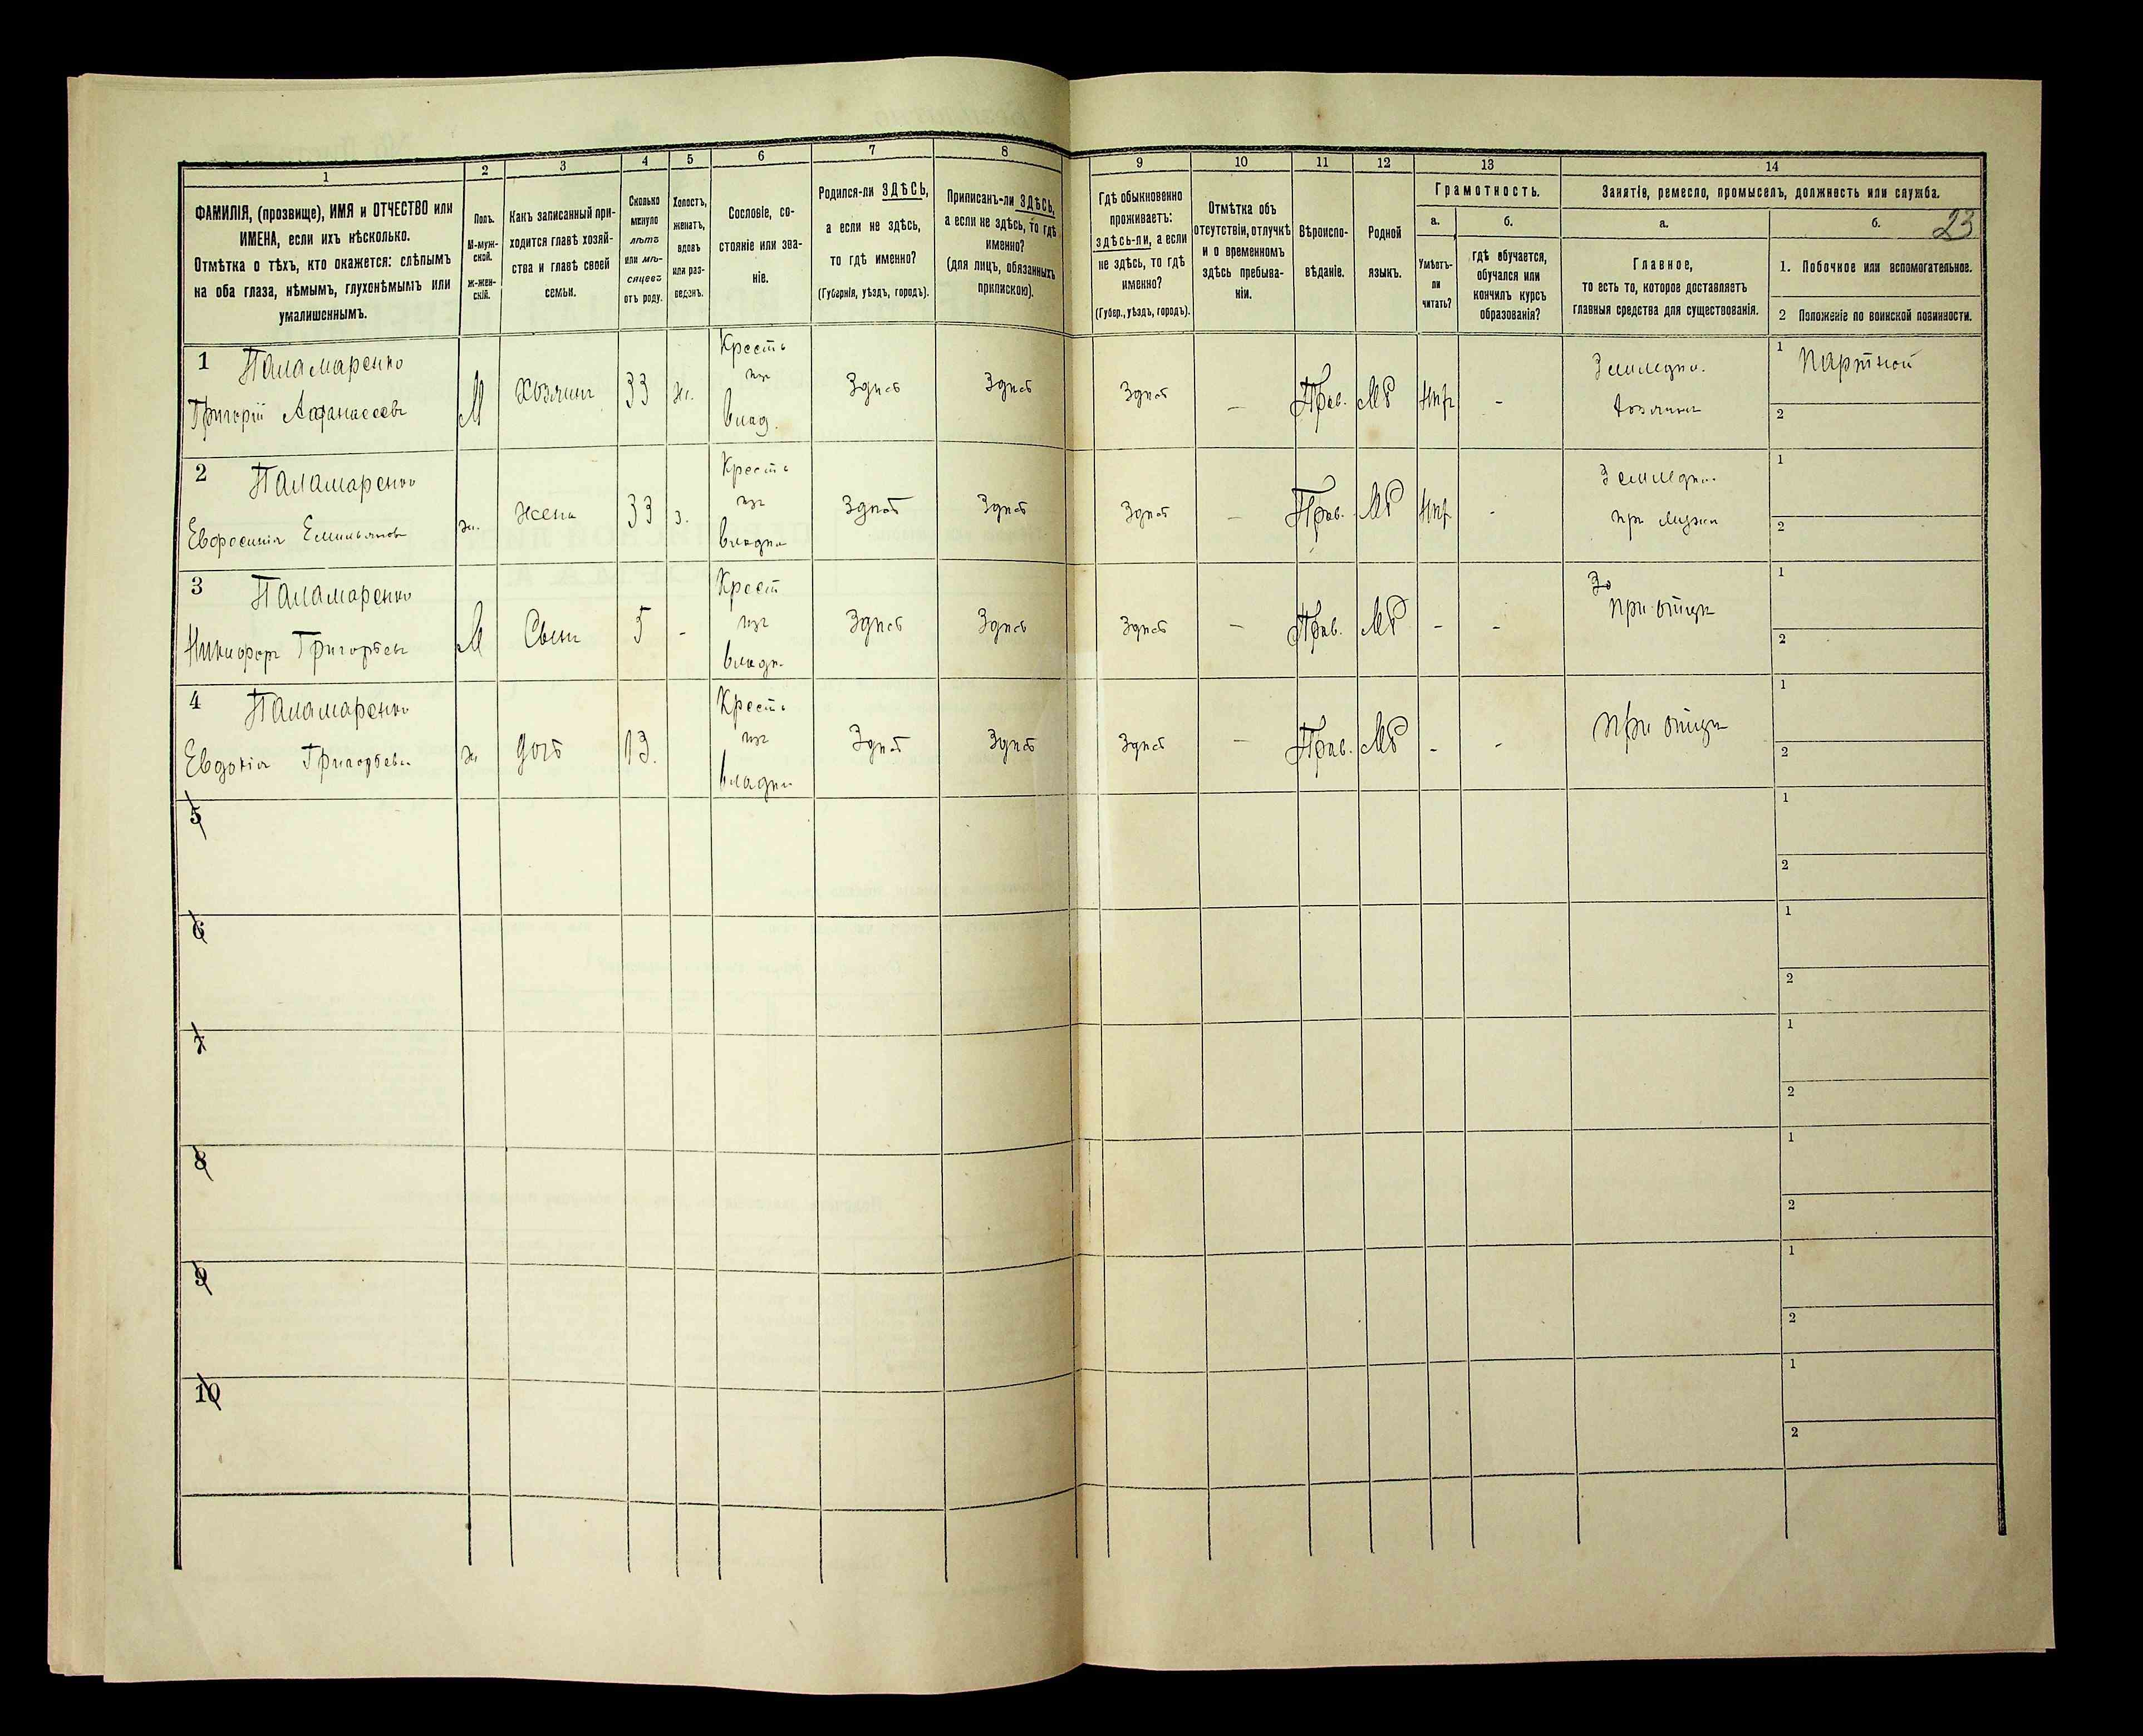 1
2
3
4
5
6
7
8
9
10
11
12
13
14
ФАМИЛІЯ, (прозвище), ИМЯ и ОТЧЕСТВО или
ИМЕНА, если ихъ нѣсколько.
Отмѣтка о тѣхъ, кто окажется: слѣпымъ
на оба глаза, нѣмымъ, глухонѣмымъ или
умалишеннымъ.
Полъ.
М-муж-
ской.
Ж-жен-
скій.
Какъ записанный при-
ходится главѣ хозяй-
ства и главѣ своей
семьи.
Сколько
минуло
лѣтъ
или мѣ-
сяцевъ
отъ роду.
Холостъ,
женатъ,
вдовъ
или раз-
веденъ.
Сословіе, со-
стояніе или зва-
ніе.
Родился-ли ЗДѢСЬ,
а если не здѣсь,
то гдѣ именно?
(Губернія, уѣздъ, городъ).
Приписанъ-ли ЗДѢСЬ,
а если не здѣсь, то гдѣ
именно?
(для лицъ, обязанныхъ
припискою).
Гдѣ обыкновенно
проживаетъ:
здѣсь-ли, а если
не здѣсь, то гдѣ
именно?
(Губер., уѣздъ, городъ).
Отмѣтка объ
отсутствіи, отлучкѣ
и о временномъ
здѣсь пребыва-
ніи.
Вѣроиспо-
вѣданіе.
Родной
языкъ.
Грамотность.
а.
б.
Умѣетъ-
ли
читать?
гдѣ обучается,
обучался или
кончилъ курсъ
образованія?
Занятіе, ремесло, промыселъ, должность или служба.
а.
б.
23
Главное,
то есть то, которое доставляетъ
главныя средства для существованія.
1. Побочное или вспомогательное.
2 Положеніе по воинской повинности.
1 Паламаренко
Григорій Афанасеевъ
М
Хозяинъ
33
ж.
Кресть
изъ
влад.
Здѣсь
Здѣсь
Здѣсь
—
Прав.
Мр
Нѣтъ
-
Земледѣл.
хозяинъ
1 Партной
2
2 Паламаренко
Евфросинія Емильянов
ж.
жена
33
з.
Кресть
изъ
владѣл
Здѣсь
Здѣсь
Здѣсь
—
Прав.
Мр
Нѣтъ
-
Земледѣл.
при мужѣ
1
2
3 Паламаренко
Никифоръ Григорьев
М
Сынъ
5
-
Крест
изъ
владѣ.
Здѣсь
Здѣсь
Здѣсь
—
Прав.
Мр
-
-
при отцѣ
1
2
4 Паламаренко
Евдокія Григорьева
ж
дочь
13.
Кресть
изъ
владѣл
Здѣсь
Здѣсь
Здѣсь
—
Прав.
Мр
-
-
при отцѣ
1
2
5
1
2
6
1
2
7
1
2
8
1
2
9
1
2
10
1
2